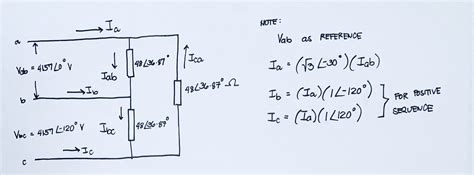 → Ia
a
Vab = 4157∠0° V
Iab
48∠36.87°
Ica
48∠36.87° Ω
→ Ib
b
Ibc
48∠36.87°
Vbc = 4157∠-120° V
→ Ic
c
NOTE:
Vab as REFERENCE
Ia = (√3 ∠-30°)(Iab)
Ib = (Ia)(1∠-120°)
Ic = (Ia)(1∠120°)
FOR POSITIVE
SEQUENCE